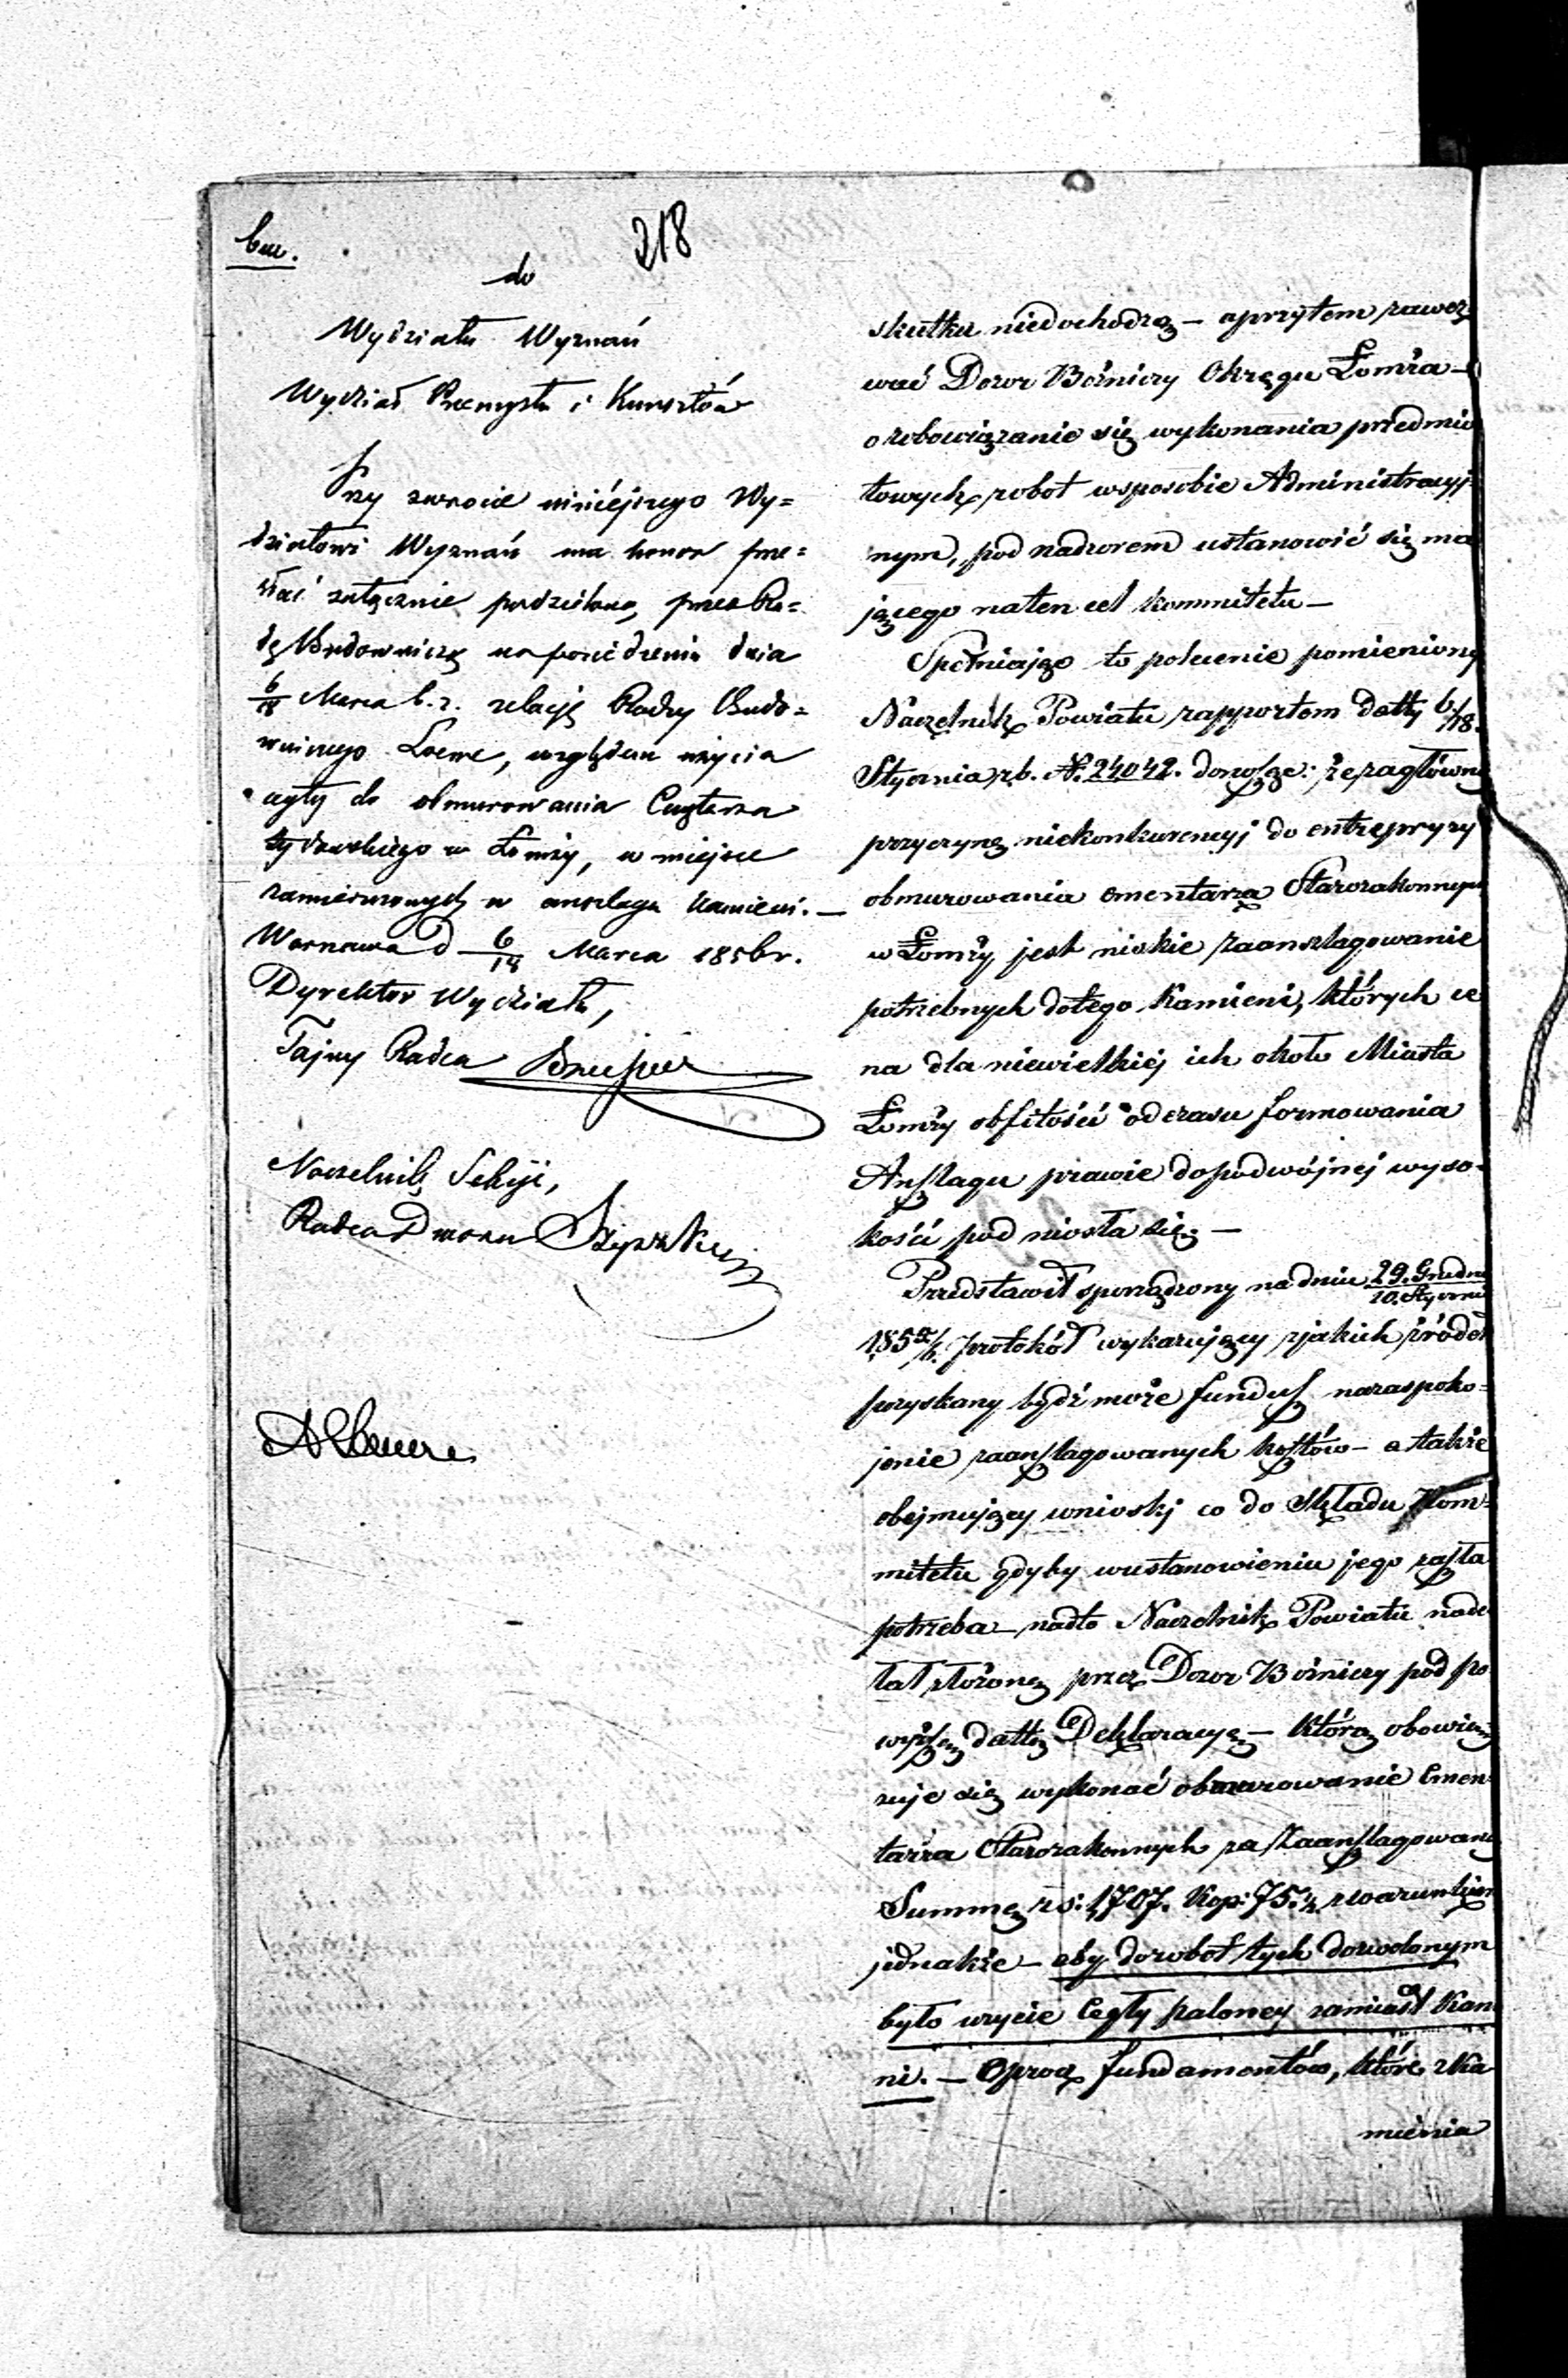 218
do
Wydziału Wyznań
Wydział Przemysłu i Kunsztów
Przy zwrocie niniéjszego Wy=
działowi Wyznań ma honor prze=
słać załącznie podzieloną, przez Ra=
dę Budowniczą na posiedzeniu dnia
6/18 Marca b. r. relacyę Radcy Budo=
wniczego Loewe, względem użycia
cegły do obmurowania Cmętarza
żydowskiego w Łomży, w miejsce
zamierzonych w anszlagu kamieni. —
Warszawa d 6/18 Marca 1856 r.
Dyrektor Wydziału,
Tajny Radca
Naczelnik Sekcyi,
Radca Dworu
skutku niedochodzą — a przytem zawez
wać Dozor Bożniczy Okręgu Łomża —
o zobowiązanie się wykonania przedmio
towych robot w sposobie Administracyj=
nym, pod nadzorem ustanowić się ma
jącego na ten cel kommitetu —
Spełniając to polecenie pomieniony
Naczelnik Powiatu rapportem datty 6/18.
Stycznia r. b. N. 24042. donosząc: że zagłówną
przyczyną niekonkurencyj do entrepryzy
obmurowania cmentarza Starozakonnych
w Łomży jest niskie zaanszlagowanie
potrzebnych do tego Kamieni, których ce
na dla niewielkiéj ich około Miasta
Łomży obfitości od czasu formowania
Anszlagu prawie do podwójnej wyso=
kości pod niosła się —
Przedstawił sporządzony na dniu 29. Grudnia/10. Stycznia
185 5/6. protokół wykazujący z jakich źródeł
pozyskany bydź może fundusz na zaspoko=
jenie zaanszlagowanych kosztów — a także
obejmujący wnioski co do Składu Kom=
mitetu gdyby w ustanowieniu jego zaszła
potrzeba — nadto Naczelnik Powiatu nade
słał złożoną przez Dozor Bożniczy pod po
wyższą dattą Deklaracyę — którą obowią=
zuje się wykonać obmurowanie Cmen=
tarza Starozakonnych za Zaanszlagowaną
Summę rs: 1707. Kop: 75.½ z warunkiem
jednakże — aby do robot tych dozwolonym
było użycie Cegły paloney zamiast Kam
ni. — Oprocz fundamentów, które z Ka
mienia